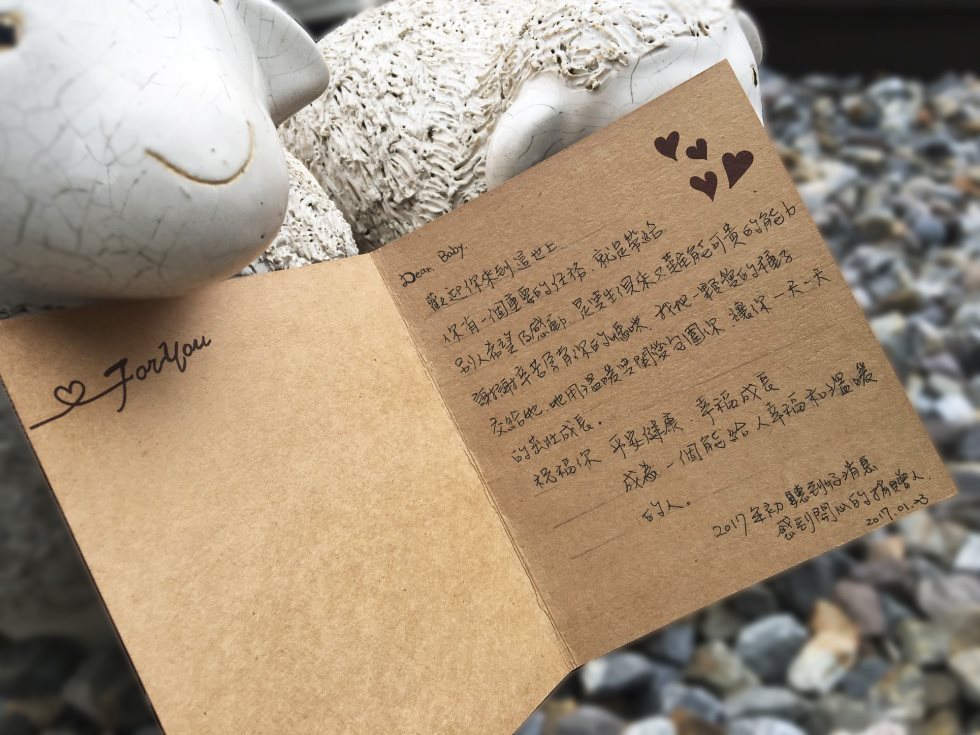 For You
Dear. Baby.
歡迎你來到這世上.
你有一個重要的任務.就是帶給
別人希望及感動.是與生俱來又難能可貴的能力
謝謝辛苦孕育你的媽咪.我把一顆愛的種子
交給她.她用溫暖與關愛包圍你.讓你一天一天
的茁壯成長.
祝福你 平安健康.幸福成長
成為一個能給人幸福和溫暖
的人。
2017年初聽到好消息
感到開心的捐贈人.
2017.01.23